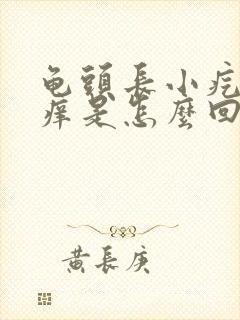 龟頭長小疙
痒是怎麼回
黄長庚